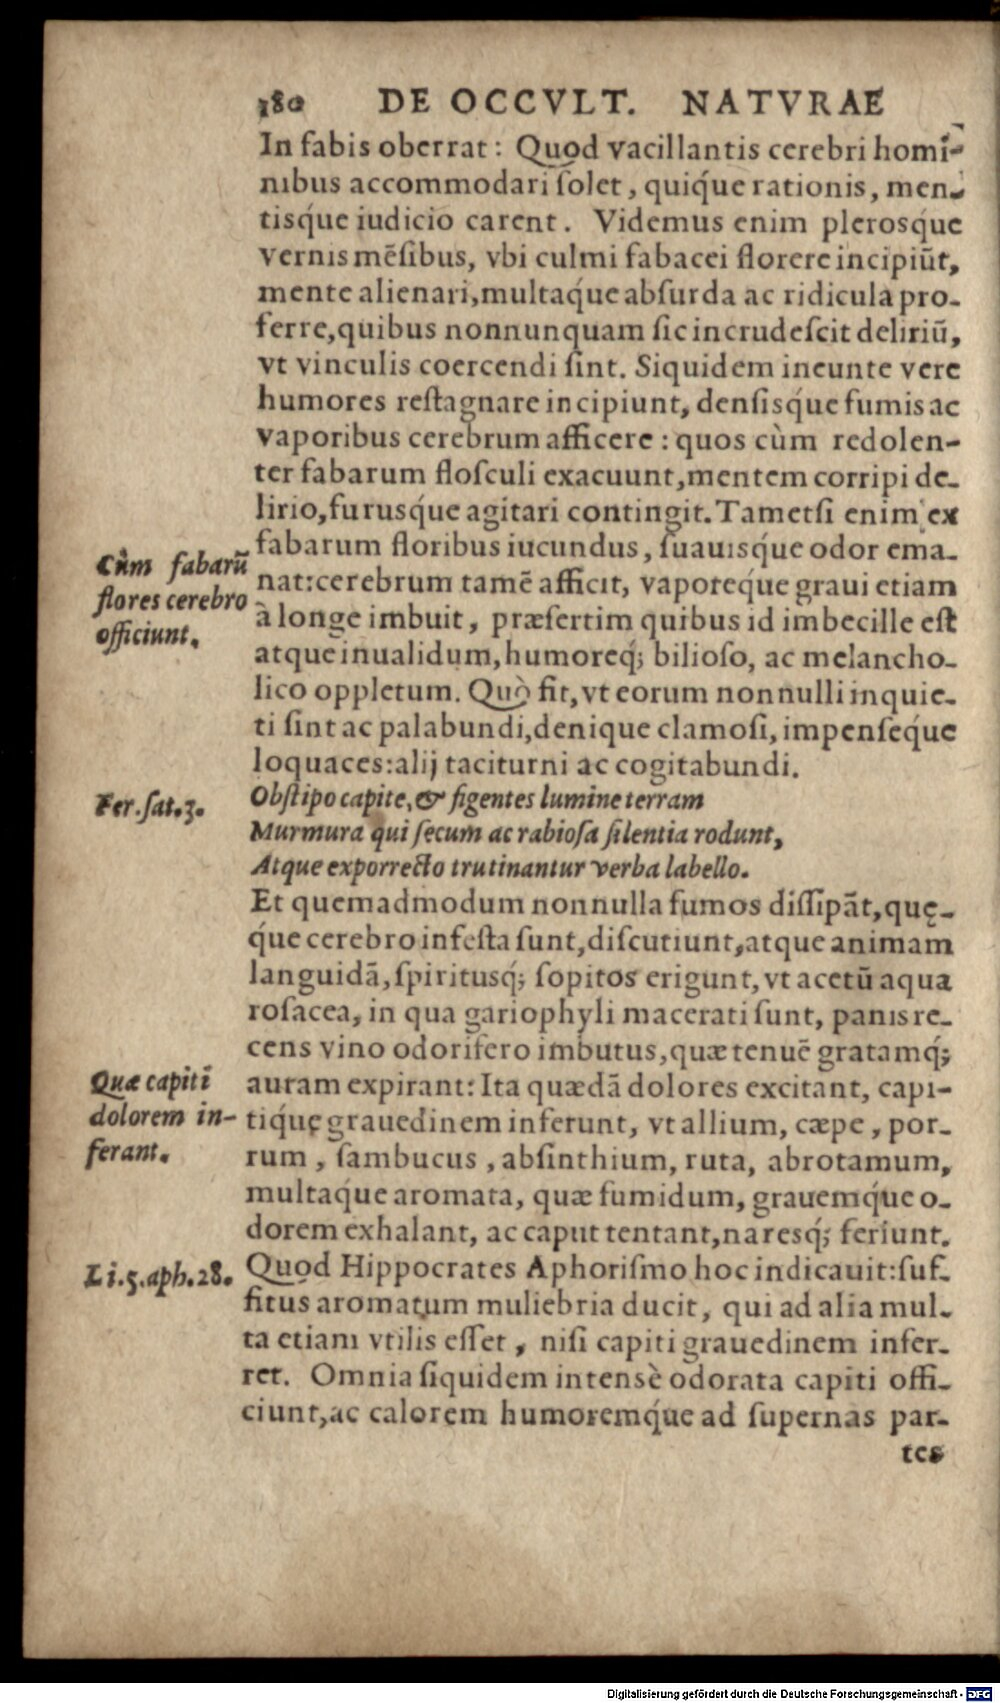 180 DE OCCVLT. NATVRAE
In fabis oberrat: Quod vacillantis cerebri homi-
nibus accommodari ſolet, quiq́ue rationis, men-
tisq́ue iudicio carent. Videmus enim plerosq́ue
vernis mẽſibus, vbi culmi fabacei florere incipiũt,
mente alienari, multaq́ue abſurda ac ridicula pro-
ferre, quibus nonnunquam ſic incrudeſcit deliriũ,
vt vinculis coercendi ſint. Siquidem ineunte vere
humores reſtagnare incipiunt, denſisq́ue fumis ac
vaporibus cerebrum afficere: quos cùm redolen-
ter fabarum floſculi exacuunt, mentem corripi de-
lirio, furusq́ue agitari contingit. Tametſi enim ex
Cùm fabarũ
flores cerebro
officiunt.
fabarum floribus iucundus, ſuauisq́ue odor ema-
nat: cerebrum tamẽ afficit, vaporeq́ue graui etiam
à longe imbuit, præſertim quibus id imbecille eſt
atque inualidum, humoreq́; bilioſo, ac melancho-
lico oppletum. Quò fit, vt eorum nonnulli inquie-
ti ſint ac palabundi, denique clamoſi, impenſeq́ue
loquaces: alij taciturni ac cogitabundi.
Per. ſat. 3.
Obſtipo capite, & figentes lumine terram
Murmura qui ſecum ac rabioſa ſilentia rodunt,
Atque exporrecto trutinantur verba labello.
Et quemadmodum nonnulla fumos diſſipãt, quę-
q́ue cerebro infeſta ſunt, diſcutiunt, atque animam
languidã, ſpiritusq́; ſopitos erigunt, vt acetũ aqua
roſacea, in qua gariophyli macerati ſunt, panis re-
cens vino odorifero imbutus, quæ tenuẽ gratamq́;
Quæ capiti
dolorem in-
ferant.
auram expirant: Ita quædã dolores excitant, capi-
tiq́uę grauedinem inferunt, vt allium, cæpe, por-
rum, ſambucus, abſinthium, ruta, abrotamum,
multaq́ue aromata, quæ fumidum, grauemq́ue o-
dorem exhalant, ac caput tentant, naresq́; feriunt.
Li. 5. aph. 28.
Quod Hippocrates Aphoriſmo hoc indicauit: ſuf-
fitus aromatum muliebria ducit, qui ad alia mul-
ta etiam vtilis eſſet, niſi capiti grauedinem infer-
ret. Omnia ſiquidem intensè odorata capiti offi-
ciunt, ac calorem humoremq́ue ad ſupernas par-
tes
Digitalisierung gefördert durch die Deutsche Forschungsgemeinschaft - DFG